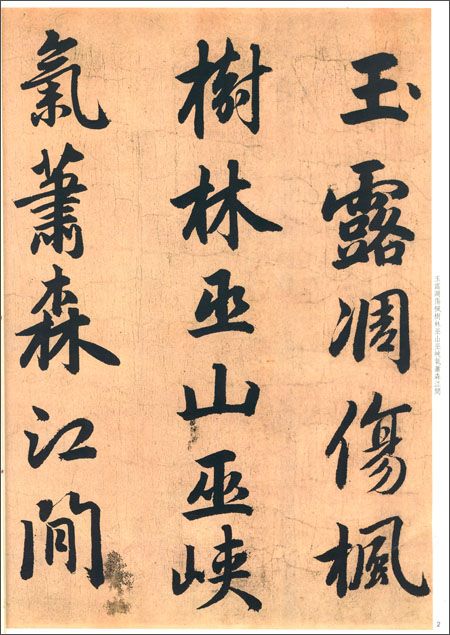 玉露凋傷楓
樹林巫山巫峽
氣蕭森江間
玉露凋傷楓樹林巫山巫峽氣蕭森江間
2